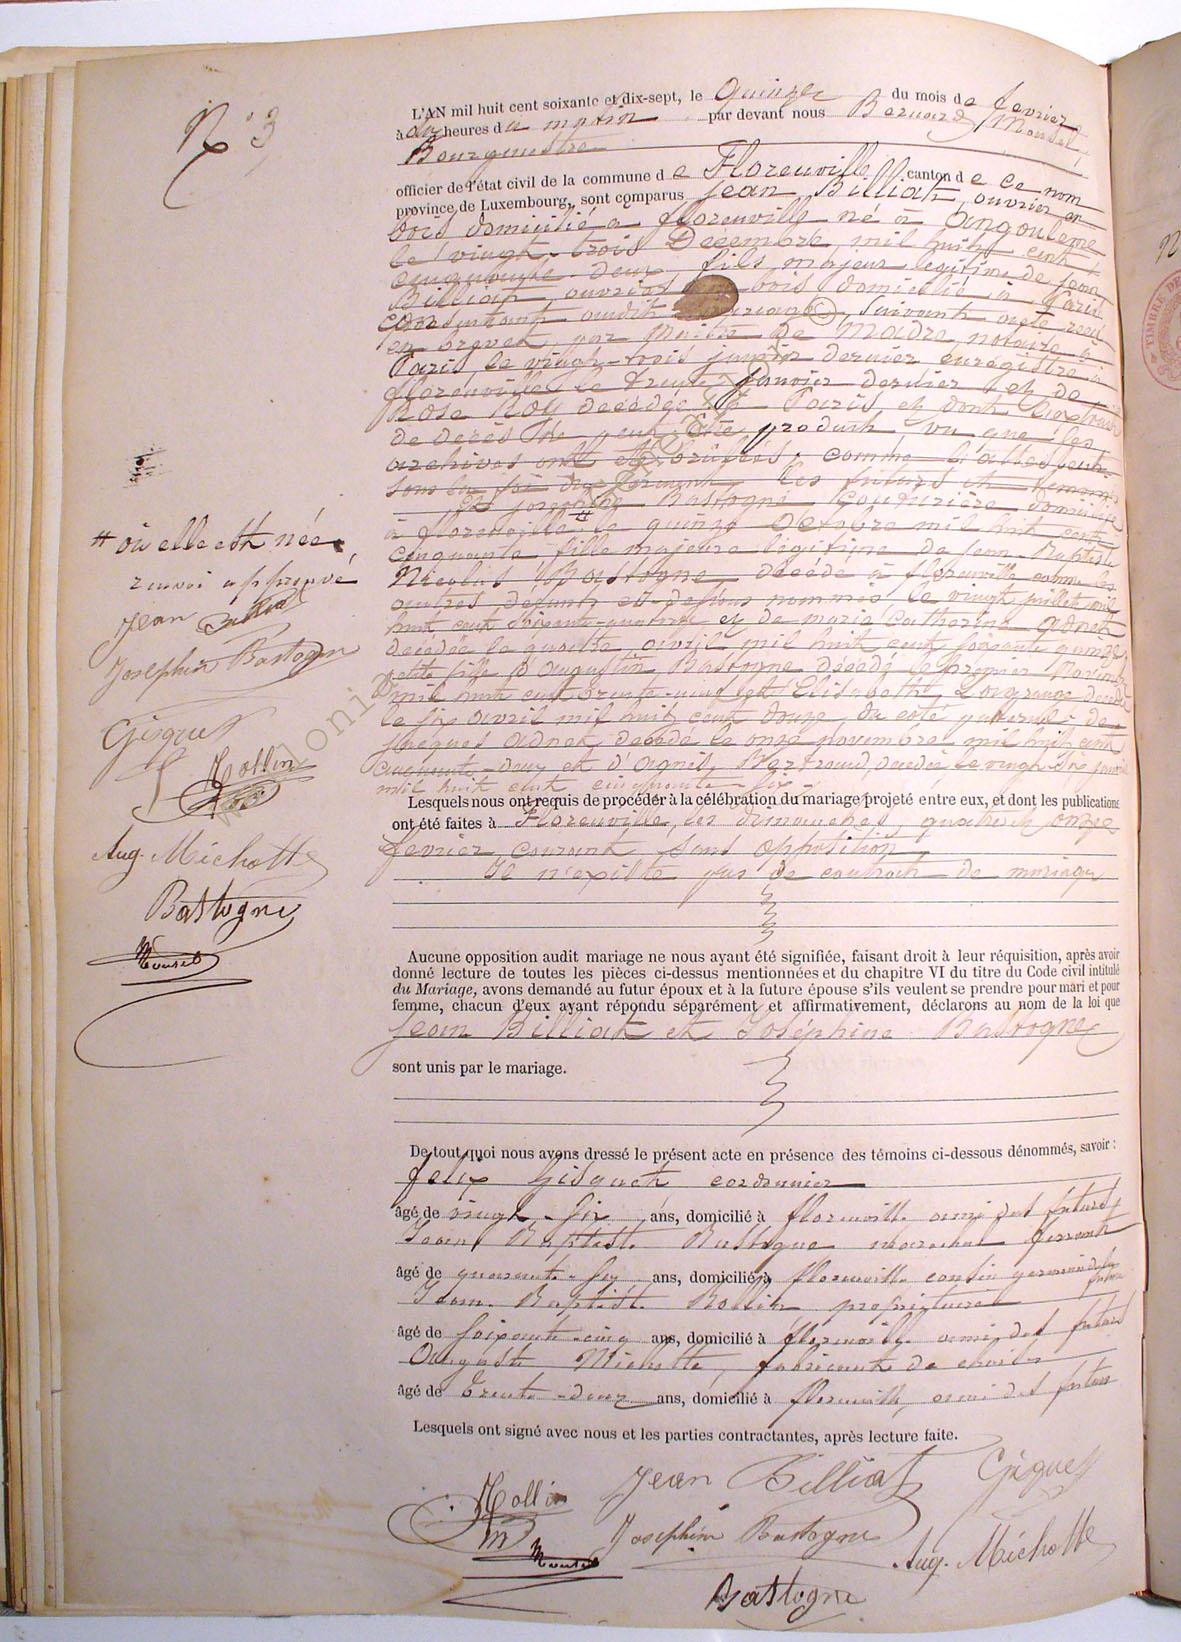 N° 3
L'AN mil huit cent soixante et dix-sept, le quinze du mois de fevrier
à dix heures du matin par devant nous Bernard Mousel,
Bourgmestre
officier de l'état civil de la commune de Florenville canton de ce nom
province de Luxembourg, sont comparus Jean Billiat, ouvrier en
bois domicilié à florenville né à Angouleme
le vingt-trois Décembre, mil huit cent
cinquante-deux, fils majeur légitime de Jean
Billiat, ouvrier en bois domicilié à Paris
consentant audit mariage, suivant acte recu
en brevet, par Maitre De Madre, notaire à
Paris, le vingt-trois janvier dernier enregistré à
florenville le trente janvier dernier et de
Rose Roy décédée à Paris, et dont l'extrait
de décès ne peut être produit vu que les
archives ont été brûlées, comme l'attestent
sous la foi du serment les futurs et temoins
Et Josephine Bastogne Couturière domiciliée
à florenville # le quinze octobre mil huit cent
cinquante fille majeure légitime de Jean-Baptiste
Nicolas Bastogne, décédé à florenville comme les
autres défunts ci-dessous nommés le vingt juillet mil
huit cent soixante-quatorze et de Marie Catherine Adnet
décédée le quatre avril mil huit cent soixante quinze,
petite fille d'Augustin Bastogne décédé le premier Novembre
mil huit cent trente-neuf et Elisabeth décédée
le six avril mil huit cent douze, du coté paternel; de
Jacques Adnet décédé le onze novembre mil huit cent
cinquante-deux et d'Agnès Bertrand décédée le vingt-six janvier
mil huit cent cinquante-six.
# où elle est née,
renvoi approuvé
Jean Billiat
Josephine Bastogne
Gisquet
Rollin
Aug. Michotte
Bastogne
Mousel
Lesquels nous ont requis de procéder à la célébration du mariage projeté entre eux, et dont les publications
ont été faites à Florenville, les dimanches, quatre et onze
fevrier courant sans opposition
Il n'existe pas de contrat de mariage
Aucune opposition audit mariage ne nous ayant été signifiée, faisant droit à leur réquisition, après avoir
donné lecture de toutes les pièces ci-dessus mentionnées et du chapitre VI du titre du Code civil intitulé
du Mariage, avons demandé au futur époux et à la future épouse s'ils veulent se prendre pour mari et pour
femme, chacun d'eux ayant répondu séparément et affirmativement, déclarons au nom de la loi que
Jean Billiat et Joséphine Bastogne
sont unis par le mariage.
De tout quoi nous avons dressé le présent acte en présence des témoins ci-dessous dénommés, savoir :
Felix Gisquet cordonnier
âgé de vingt-six ans, domicilié à florenville ami des futurs,
Jean Baptiste Bastogne marechal ferrant
âgé de quarante-six ans, domicilié à florenville cousin germain de la future
Jean-Baptiste Rollin proprietaire
âgé de soixante-cinq ans, domicilié à florenville ami des futurs
Auguste Michotte, fabricant de
âgé de trente-deux ans, domicilié à florenville, ami des futurs
Lesquels ont signé avec nous et les parties contractantes, après lecture faite.
Rollin Jean Billiat Gisquet
Mousel Josephine Bastogne Aug. Michotte
Bastogne